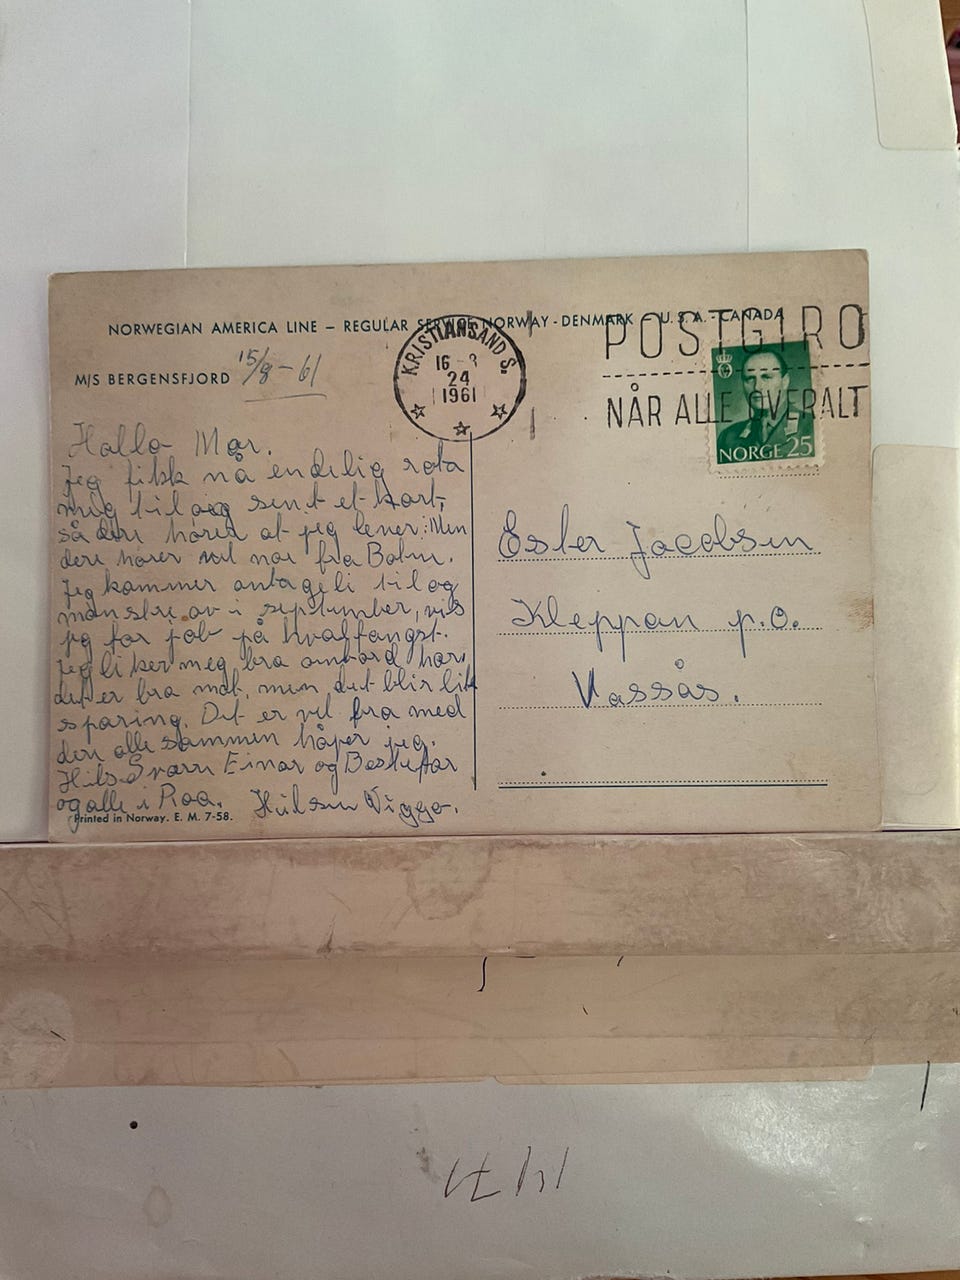 NORWEGIAN AMERICA LINE – REGULAR SERVICE NORWAY - DENMARK – U.S.A. - CANADA
M/S BERGENSFJORD 15/8 - 61
KRISTIANSAND S.
16 - 8
24
1961
POSTGIRO
NÅR ALLE OVERALT
NORGE 25
Hallo Mor.
Jeg fikk nå endelig rota
meg til og sent et kort,
så dere hører at jeg lever. Men
dere hører vel noe fra
Jeg kommer antageli til og
mønstre av i september, vis
jeg for job på hvalfangst.
Jeg liker meg bra ombord her,
det er bra mat, men det blir lit
sparing. Det er vel bra med
dere alle sammen håper jeg.
Hils Sværn Einar og Bestefar
og alle i Roa. Hilsen Viggo.
Printed in Norway. E. M. 7-58.
Ester Jacobsen
Kleppan p.o.
Vassås.